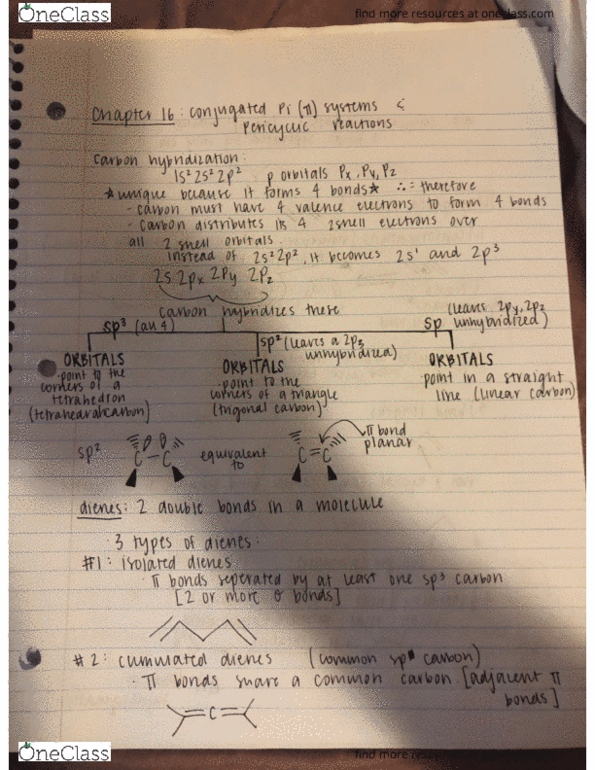 OneClass
find more resources at oneclass.com
Chapter 16: conjugated Pi (π) systems &
Pericyclic reactions
Carbon hybridization:
1s² 2s² 2p² p orbitals Px, Py, Pz
★ unique because it forms 4 bonds ★ ∴ = therefore
- carbon must have 4 valence electrons to form 4 bonds
- Carbon distributes its 4 2shell electrons over
all 2 shell orbitals.
instead of 2s² 2p², it becomes 2s¹ and 2p³
2s 2px 2Py 2Pz
carbon hybridizes these
sp³ (all 4)
sp² (leaves a 2pz
unhybridized)
sp
(leaves 2py, 2pz
unhybridized)
ORBITALS
· point to the
corners of a
tetrahedron
(tetrahedral carbon)
ORBITALS
· point to the
corners of a triangle
(trigonal carbon)
ORBITALS
point in a straight
line (linear carbon)
sp²
C – C
equivalent
to
C = C
π bond
planar
dienes: 2 double bonds in a molecule
· 3 types of dienes:
#1: isolated dienes
· π bonds seperated by at least one sp³ carbon
[2 or more σ bonds]
#2: cumulated dienes (common sp carbon)
· π bonds share a common carbon [adjacent π
bonds]
=C=
OneClass
find more